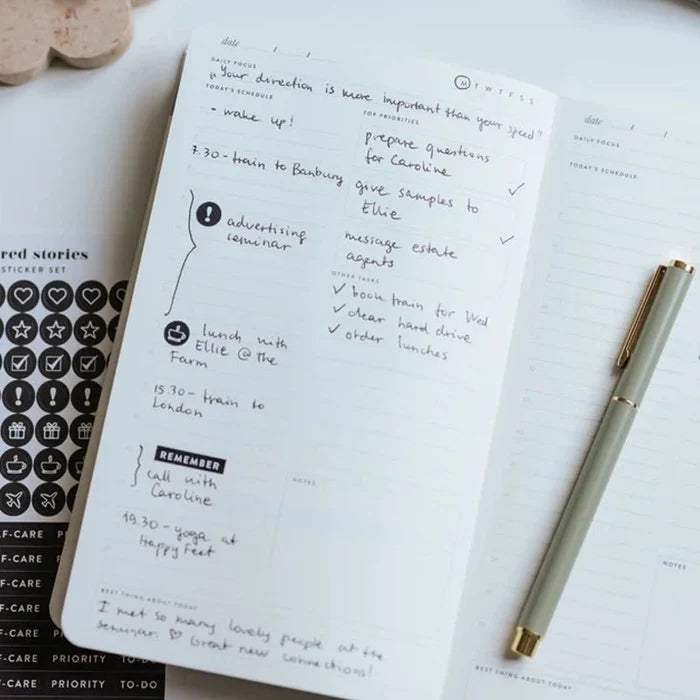 date / /
M T W T F S S
DAILY FOCUS
"Your direction is more important than your speed"
TODAY'S SCHEDULE
- wake up!
7.30 - train to Banbury
! advertising
seminar
lunch with
Ellie @ the
Farm
15.30 - train to
London
REMEMBER
call with
Caroline
19.30 - yoga at
Happy Feet
TOP PRIORITIES
prepare questions
for Caroline
give samples to ✓
Ellie
message estate ✓
agents
OTHER TASKS
✓ book train for Wed
✓ clear hard drive
✓ order lunches
NOTES
BEST THING ABOUT TODAY
I met so many lovely people at the
seminar. ♡ Great new connections!
date / /
DAILY FOCUS
TODAY'S SCHEDULE
NOTES
BEST THING ABOUT TODAY
red stories
STICKER SET
F-CARE P
F-CARE P
F-CARE
F-CARE
F-CARE PRIORITY
F-CARE PRIORITY TO-DO
F-CARE PRIORITY TO-DO